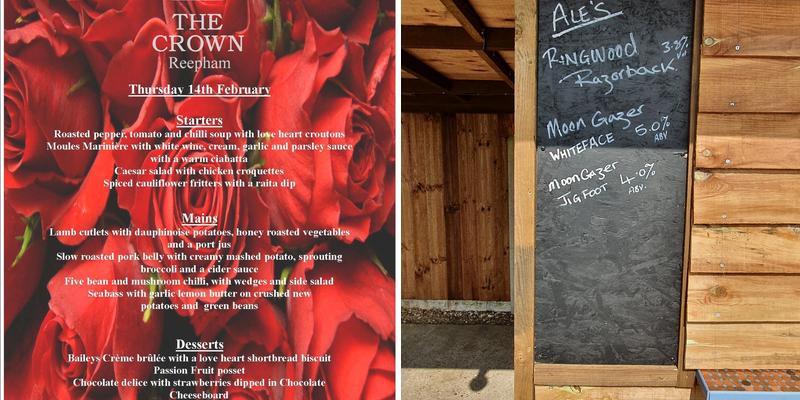 THE
CROWN
Reepham
Thursday 14th February
Starters
Roasted pepper, tomato and chilli soup with love heart croutons
Moules Mariniere with white wine, cream, garlic and parsley sauce
with a warm ciabatta
Caesar salad with chicken croquettes
Spiced cauliflower fritters with a raita dip
Mains
Lamb cutlets with dauphinoise potatoes, honey roasted vegetables
and a port jus
Slow roasted pork belly with creamy mashed potato, sprouting
broccoli and a cider sauce
Five bean and mushroom chilli, with wedges and side salad
Seabass with garlic lemon butter on crushed new
potatoes and green beans
Desserts
Baileys Crème brûlée with a love heart shortbread biscuit
Passion Fruit posset
Chocolate delice with strawberries dipped in Chocolate
Cheeseboard
ALE'S
RINGWOOD
Razorback
Moon Gazer
WHITEFACE 5.0%
ABV
MoonGazer
JIGFOOT 4.0%
ABV.